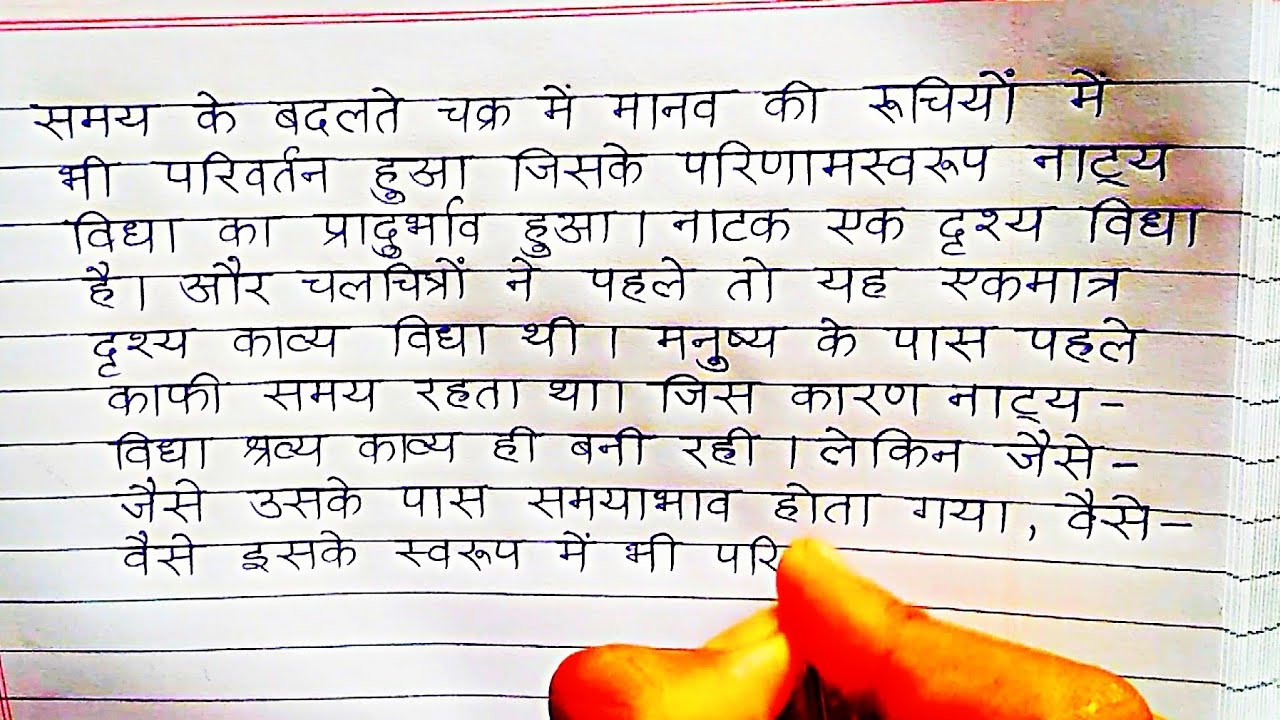 समय के बदलते चक्र में मानव की रूचियों में
भी परिवर्तन हुआ जिसके परिणामस्वरूप नाट्य
विधा का प्रादुर्भाव हुआ। नाटक एक दृश्य विधा
है। और चलचित्रों ने पहले तो यह एकमात्र
दृश्य काव्य विधा थी। मनुष्य के पास पहले
काफी समय रहता था। जिस कारण नाट्य-
विधा श्रव्य काव्य ही बनी रही। लेकिन जैसे-
जैसे उसके पास समयाभाव होता गया, वैसे-
वैसे इसके स्वरूप में भी परि